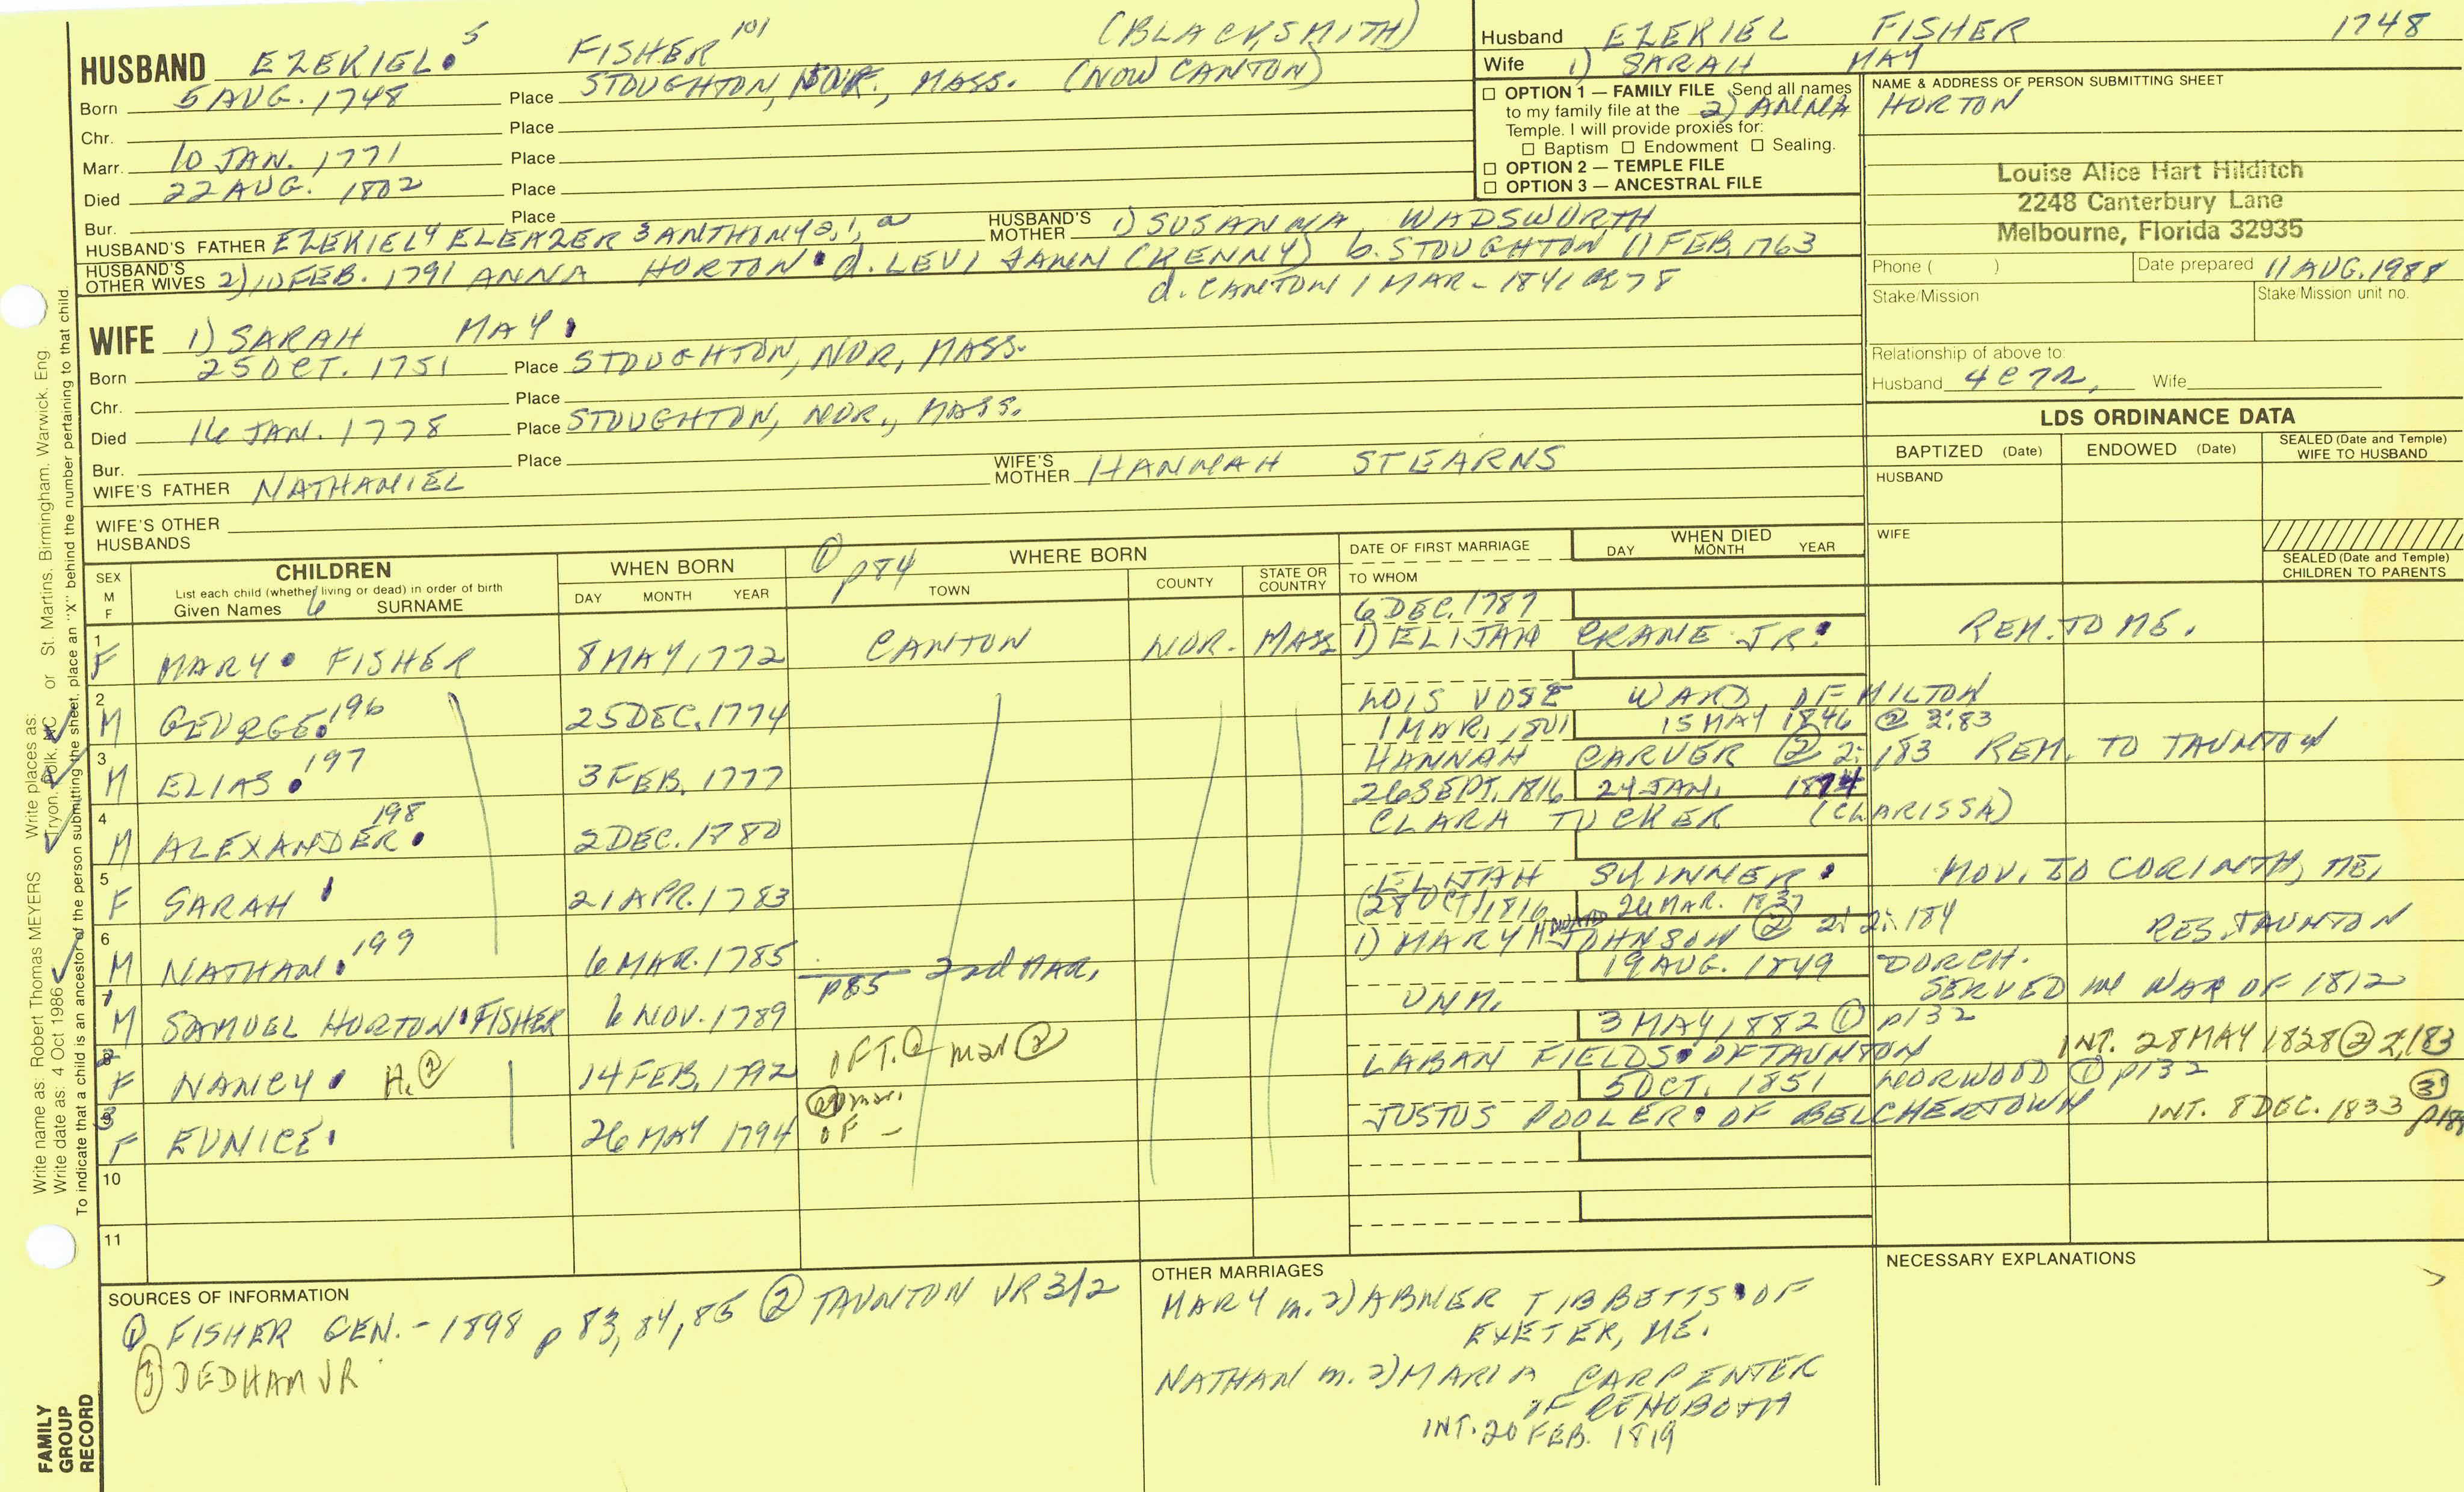 HUSBAND EZEKIEL. 5 FISHER 101 (BLACKSMITH)
Born 5 AUG. 1748 Place STOUGHTON, NOR., MASS. (NOW CANTON)
Chr. Place
Marr. 10 JAN. 1771 Place
Died 22 AUG. 1802 Place
Bur. Place
HUSBAND'S FATHER EZEKIEL 4 ELEAZER 3 ANTHONY 2, 1, a HUSBAND'S MOTHER 1) SUSANNA WADSWORTH
HUSBAND'S OTHER WIVES 2) 10 FEB. 1791 ANNA HORTON d. LEVI & ANN (KENNY) b. STOUGHTON 11 FEB. 1763
d. CANTON 1 MAR - 1841 AE 78
WIFE 1) SARAH MAY.
Born 25 OCT. 1751 Place STOUGHTON, NOR, MASS.
Chr. Place
Died 16 JAN. 1778 Place STOUGHTON, NOR., MASS.
Bur. Place
WIFE'S FATHER NATHANIEL WIFE'S MOTHER HANNAH STEARNS
WIFE'S OTHER HUSBANDS
Husband EZEKIEL FISHER 1748
Wife 1) SARAH MAY
2) ANNA HORTON
☐ OPTION 1 — FAMILY FILE Send all names
to my family file at the
Temple. I will provide proxies for:
☐ Baptism ☐ Endowment ☐ Sealing.
☐ OPTION 2 — TEMPLE FILE
☐ OPTION 3 — ANCESTRAL FILE
NAME & ADDRESS OF PERSON SUBMITTING SHEET
Louise Alice Hart Hilditch
2248 Canterbury Lane
Melbourne, Florida 32935
Phone ( ) Date prepared 11 AUG. 1988
Stake/Mission Stake/Mission unit no.
Relationship of above to:
Husband 4C7R, Wife
LDS ORDINANCE DATA
BAPTIZED (Date) ENDOWED (Date) SEALED (Date and Temple) WIFE TO HUSBAND
HUSBAND
WIFE
SEALED (Date and Temple) CHILDREN TO PARENTS
SEX M F
CHILDREN
List each child (whether living or dead) in order of birth
Given Names 6 SURNAME
WHEN BORN
DAY MONTH YEAR
① p84 WHERE BORN
TOWN COUNTY STATE OR COUNTRY
DATE OF FIRST MARRIAGE
TO WHOM
WHEN DIED
DAY MONTH YEAR
6 DEC. 1787
1 F MARY. FISHER 8 MAY, 1772 CANTON NOR. MASS 1) ELIJAH CRANE JR. REM. TO ME.
2 M GEORGE. 196 25 DEC. 1774 LOIS VOSE WARD OF MILTON
1 MAR. 1801 15 MAY 1846 @ 2:83
3 M ELIAS. 197 3 FEB. 1777 HANNAH CARVER ② 2:183 REM. TO TAUNTON
26 SEPT. 1816 24 JAN. 1874
4 M ALEXANDER. 198 2 DEC. 1780 CLARA TUCKER (CLARISSA)
5 F SARAH 21 APR. 1783 ELIJAH SKINNER. MOV. TO CORINTH, ME.
(28 OCT) 1816 26 MAR. 1837
6 M NATHAN. 199 6 MAR. 1785 1) MARY HOWARD JOHNSON ② 2: 184 RES. TAUNTON
p85 2nd MAR. 19 AUG. 1849 DORCH.
7 M SAMUEL HORTON FISHER 6 NOV. 1789 UNM. SERVED IN WAR OF 1812
3 MAY, 1882 ① p132
8 F NANCY. H. ② 14 FEB. 1792 OF T. @ mar ② LABAN FIELDS. OF TAUNTON INT. 28 MAY 1828 ② 2,183
5 OCT. 1851 NORWOOD ① p132
9 F EUNICE. 26 MAY 1794 OF - JUSTUS POOLER. OF BELCHERTOWN INT. 8 DEC. 1833 ③
10
11
SOURCES OF INFORMATION
① FISHER GEN. - 1898 p 83, 84, 85 ② TAUNTON VR
③ DEDHAM VR
OTHER MARRIAGES
MARY m. 2) ABNER TIBBETTS. OF
EXETER, ME.
NATHAN m. 2) MARIA CARPENTER
OF REHOBOTH
INT. 20 FEB. 1819
NECESSARY EXPLANATIONS
Write name as: Robert Thomas MEYERS Write places as: Tryon, Polk, NC or St. Martins, Birmingham, Warwick, Eng.
Write date as: 4 Oct 1986
To indicate that a child is an ancestor of the person submitting the sheet, place an "X" behind the number pertaining to that child.
FAMILY
GROUP
RECORD